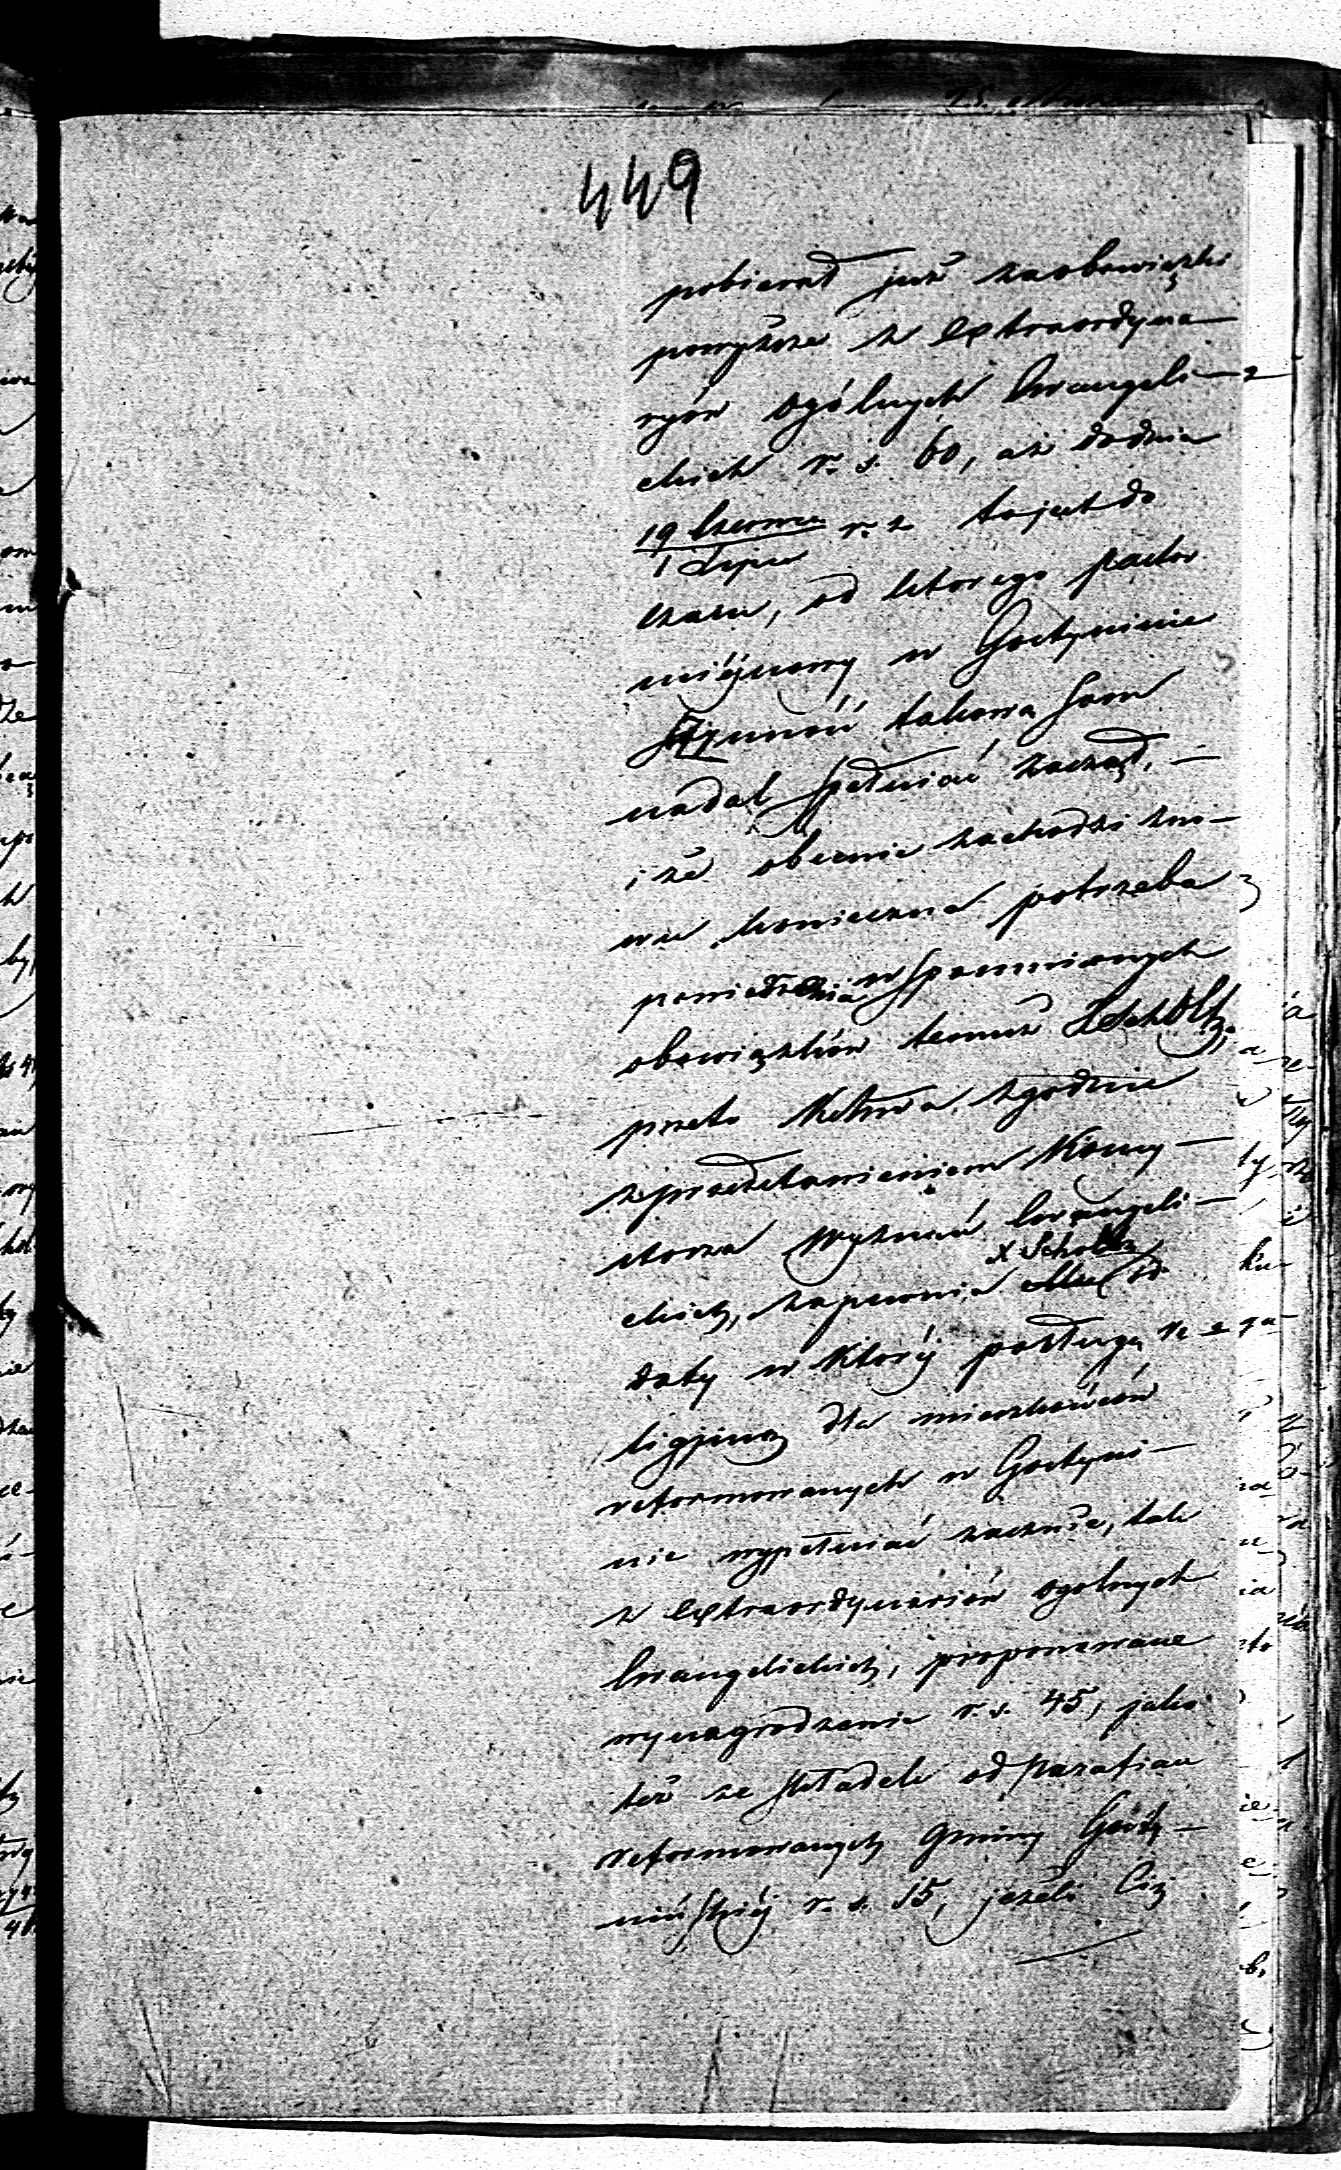 449
pobierał już za obowiązki
powyższe z Extraordyna-
ryów ogólnych Ewangeli-
ckich r. s. 60, aż do dnia
19 Czerwca
1 Lipca r. z. to jest do
czasu, od którego pastor
miéjscowy w Gostyninie
takowe sam
nadal spełniać zaczął, –
i że obecnie zachodzi zno-
wu konieczna potrzeba
powierzenia wspomnionych
obowiązków temuż X Scholtz,
przeto zgodnie
z przedstawieniem Konsy-
storza Wyznań Ewangeli-
ckich, zapewnia X Scholtz od
daty w któréj posługę re-
ligijną dla mieszkańców
reformowanych w Gostyni-
nie wypełniać zacznie, tak
z Extraordynariów ogólnych
Ewangelickich, proponowane
wynagrodzenie r. s. 45, jako
też ze składek od Parafian
reformowanych Gminy Gosty-
nińskiéj r. s. 15, jeżeli Ciż